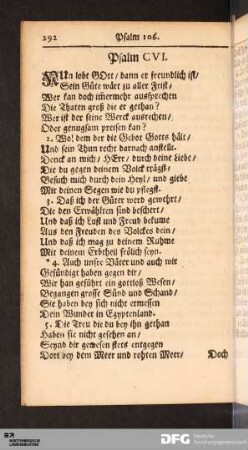 292
Psalm 106.
Psalm CVI.
NUn lobt GOtt / dann er freundlich ist /
Sein Güte wärt zu aller Frist /
Wer kan doch im̃ermehr aussprechen
Die Thaten groß die er gethan?
Wer ist der seine Werck ausrechen /
Oder genugsam preisen kan?
2. Wol dem der die Gebot Gotts hält /
Und sein Thun recht darnach anstellt.
Denck an mich / HErr / durch deine Liebe /
Die du gegen deinem Volck trägst /
Besuch mich durch dein Heyl / und giebe
Mit deinen Segen wie du pflegst.
3. Daß ich der Güter werd gewehrt /
Die den Erwählten sind beschert /
Und daß ich Lust und Freud bekume
Aus den Freuden des Volckes dein /
Und daß ich mag zu deinem Ruhme
Mit deinem Erbtheil frölich seyn.
* 4. Auch unsre Väter und auch wir
Gesündigt haben gegen dir /
Wir han geführt ein gottloß Wesen /
Begangen grosse Sünd und Schand /
Sie haben bey sich nicht ermessen
Dein Wunder in Egyptenland.
5. Die Treu die du bey ihn gethan
Haben sie nicht gesehen an /
Seynd dir gewesen stets entgegen
Dort bey dem Meer und rohten Meer /
Doch
DFG
Deutsche
Forschungsgemeinschaft